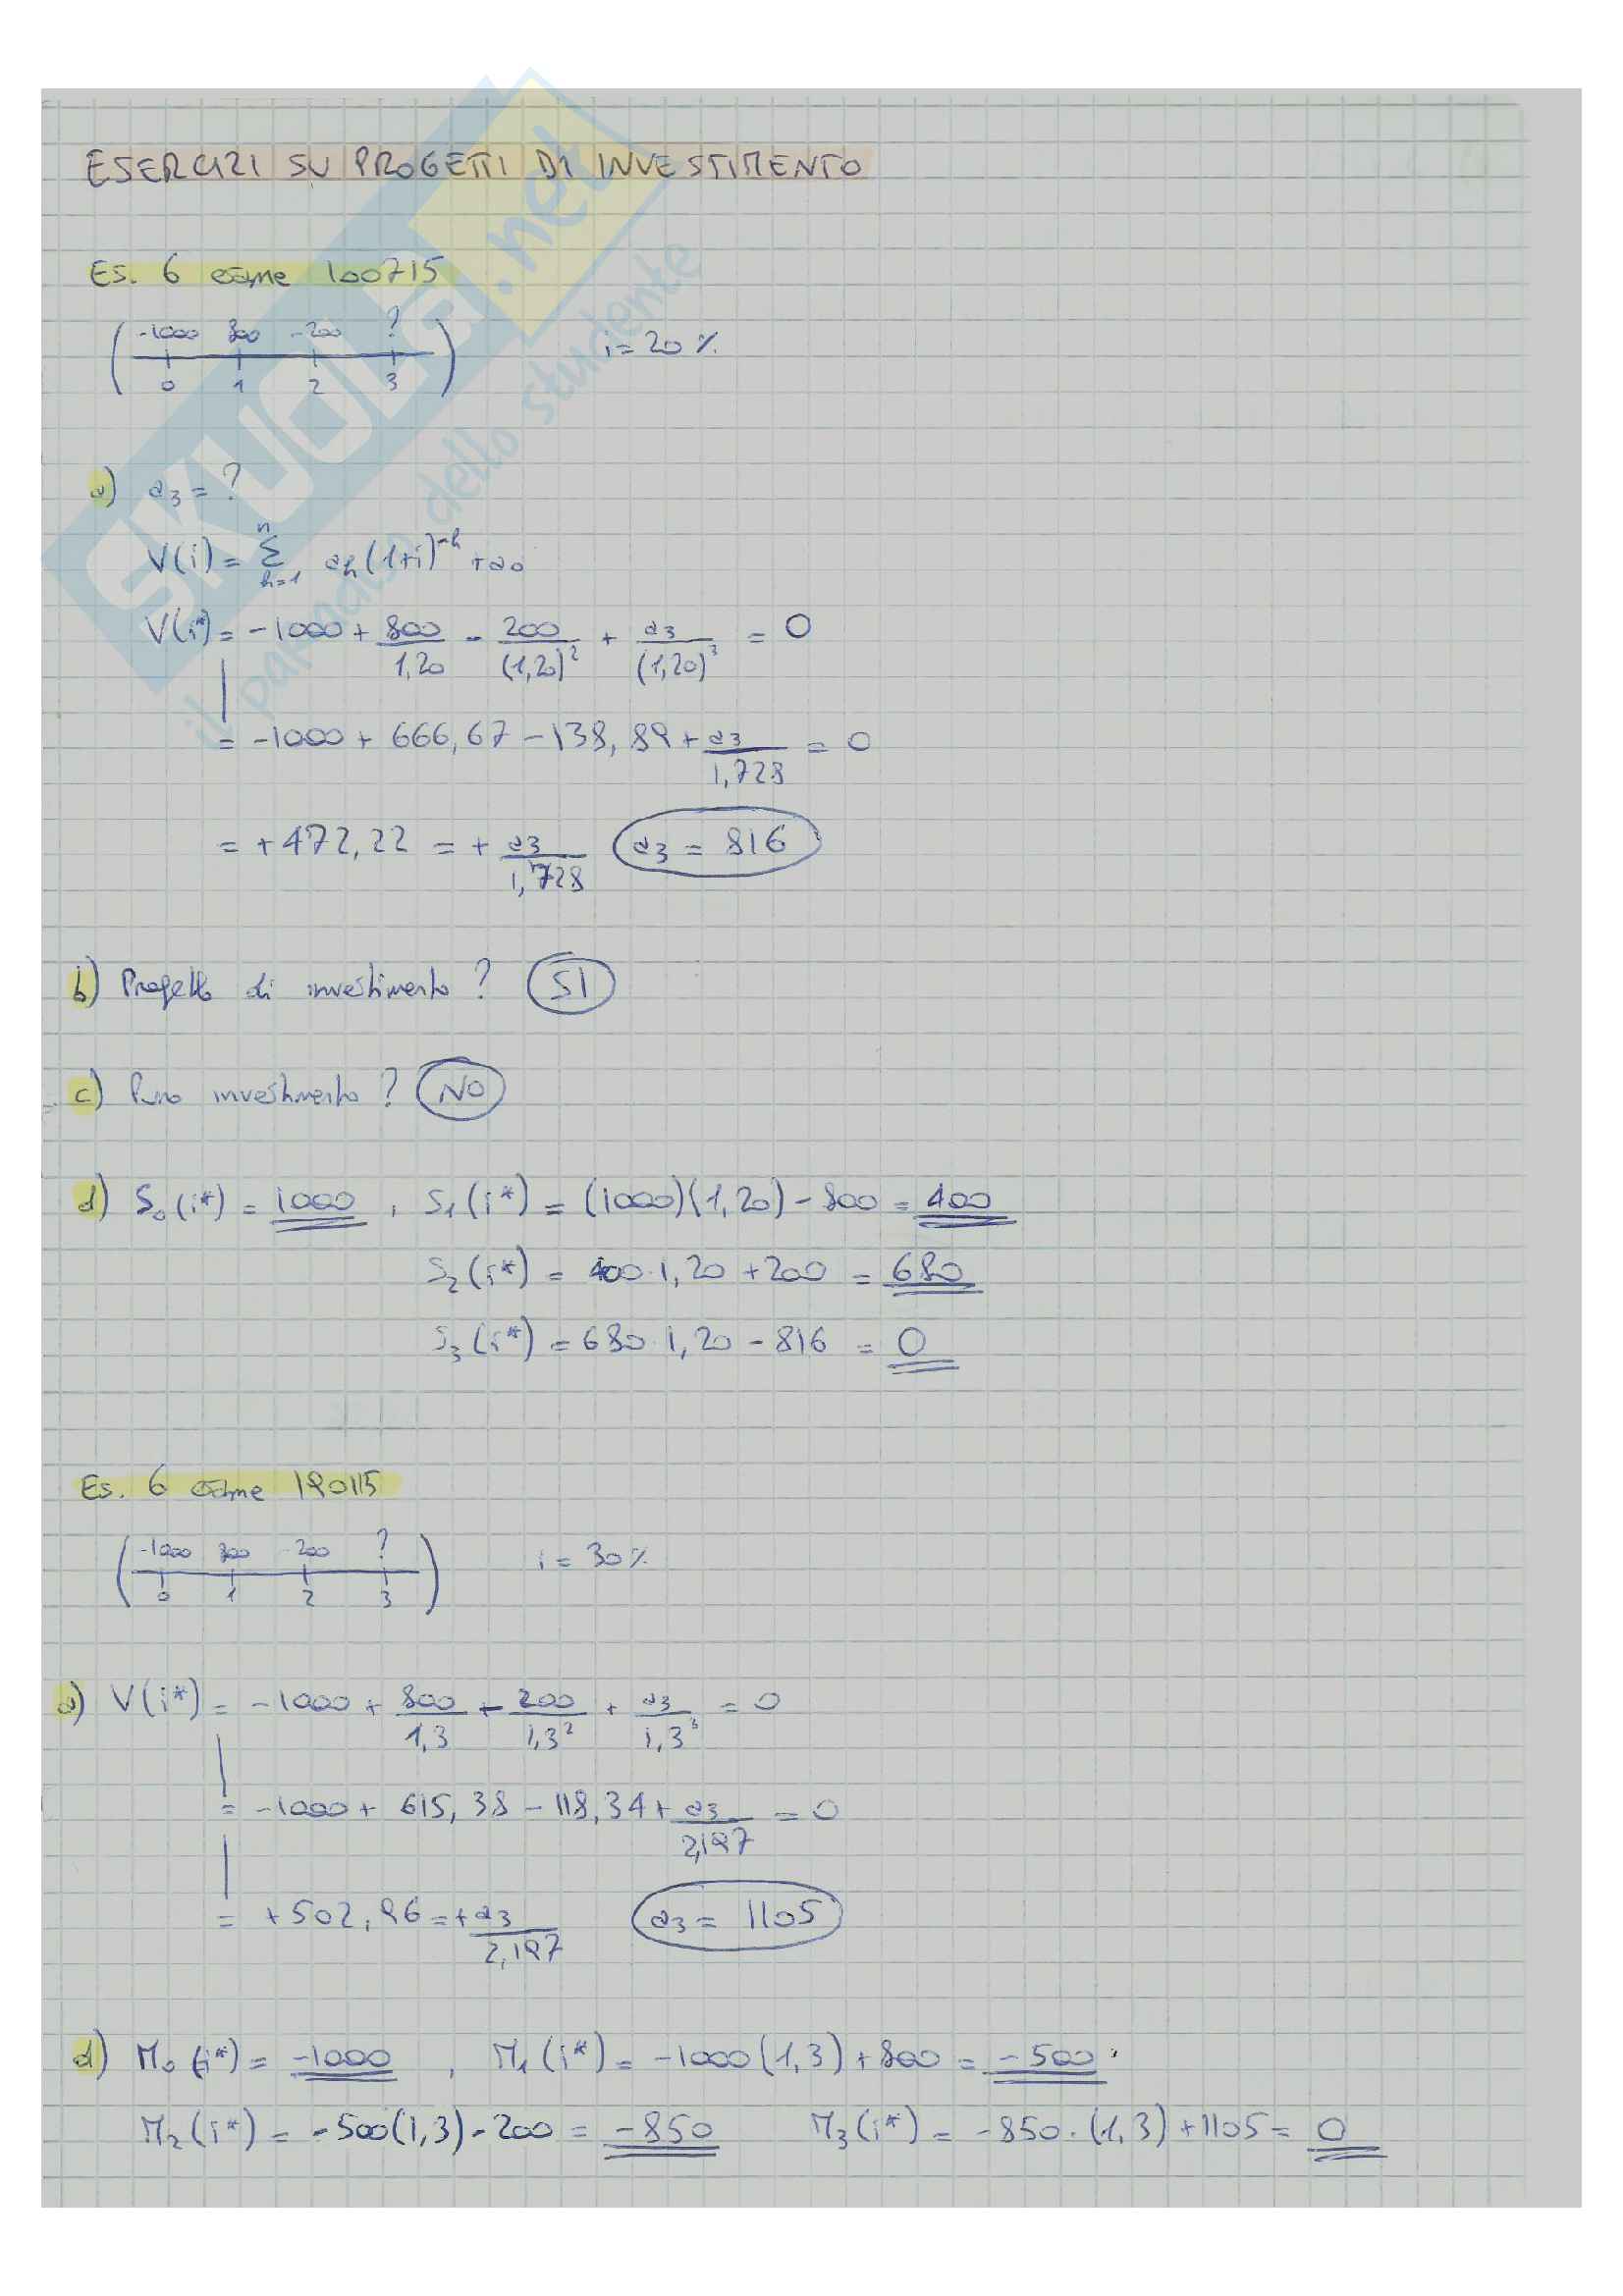 ESERCIZI SU PROGETTI DI INVESTIMENTO
Es. 6 esame 100715
-1000 800 -200 ?
0 1 2 3
i = 20 %
a) a3 = ?
V(i) = Σ n h=1 ah (1+i)^-h + a0
V(i*) = -1000 + 800/1,20 - 200/(1,20)^2 + a3/(1,20)^3 = 0
= -1000 + 666,67 - 138,89 + a3/1,728 = 0
= +472,22 = + a3/1,728 a3 = 816
b) Progetto di investimento? SI
c) Puro investimento? NO
d) S0(i*) = 1000 , S1(i*) = (1000)(1,20) - 800 = 400
S2(i*) = 400·1,20 + 200 = 680
S3(i*) = 680·1,20 - 816 = 0
Es. 6 esame 190115
-1000 800 -200 ?
0 1 2 3
i = 30 %
a) V(i*) = -1000 + 800/1,3 - 200/1,3^2 + a3/1,3^3 = 0
= -1000 + 615,38 - 118,34 + a3/2,197 = 0
= +502,96 = + a3/2,197 a3 = 1105
d) M0(i*) = -1000 , M1(i*) = -1000(1,3) + 800 = -500
M2(i*) = -500(1,3) - 200 = -850 M3(i*) = -850·(1,3) + 1105 = 0
SKUOLA.net
il paradiso dello studente